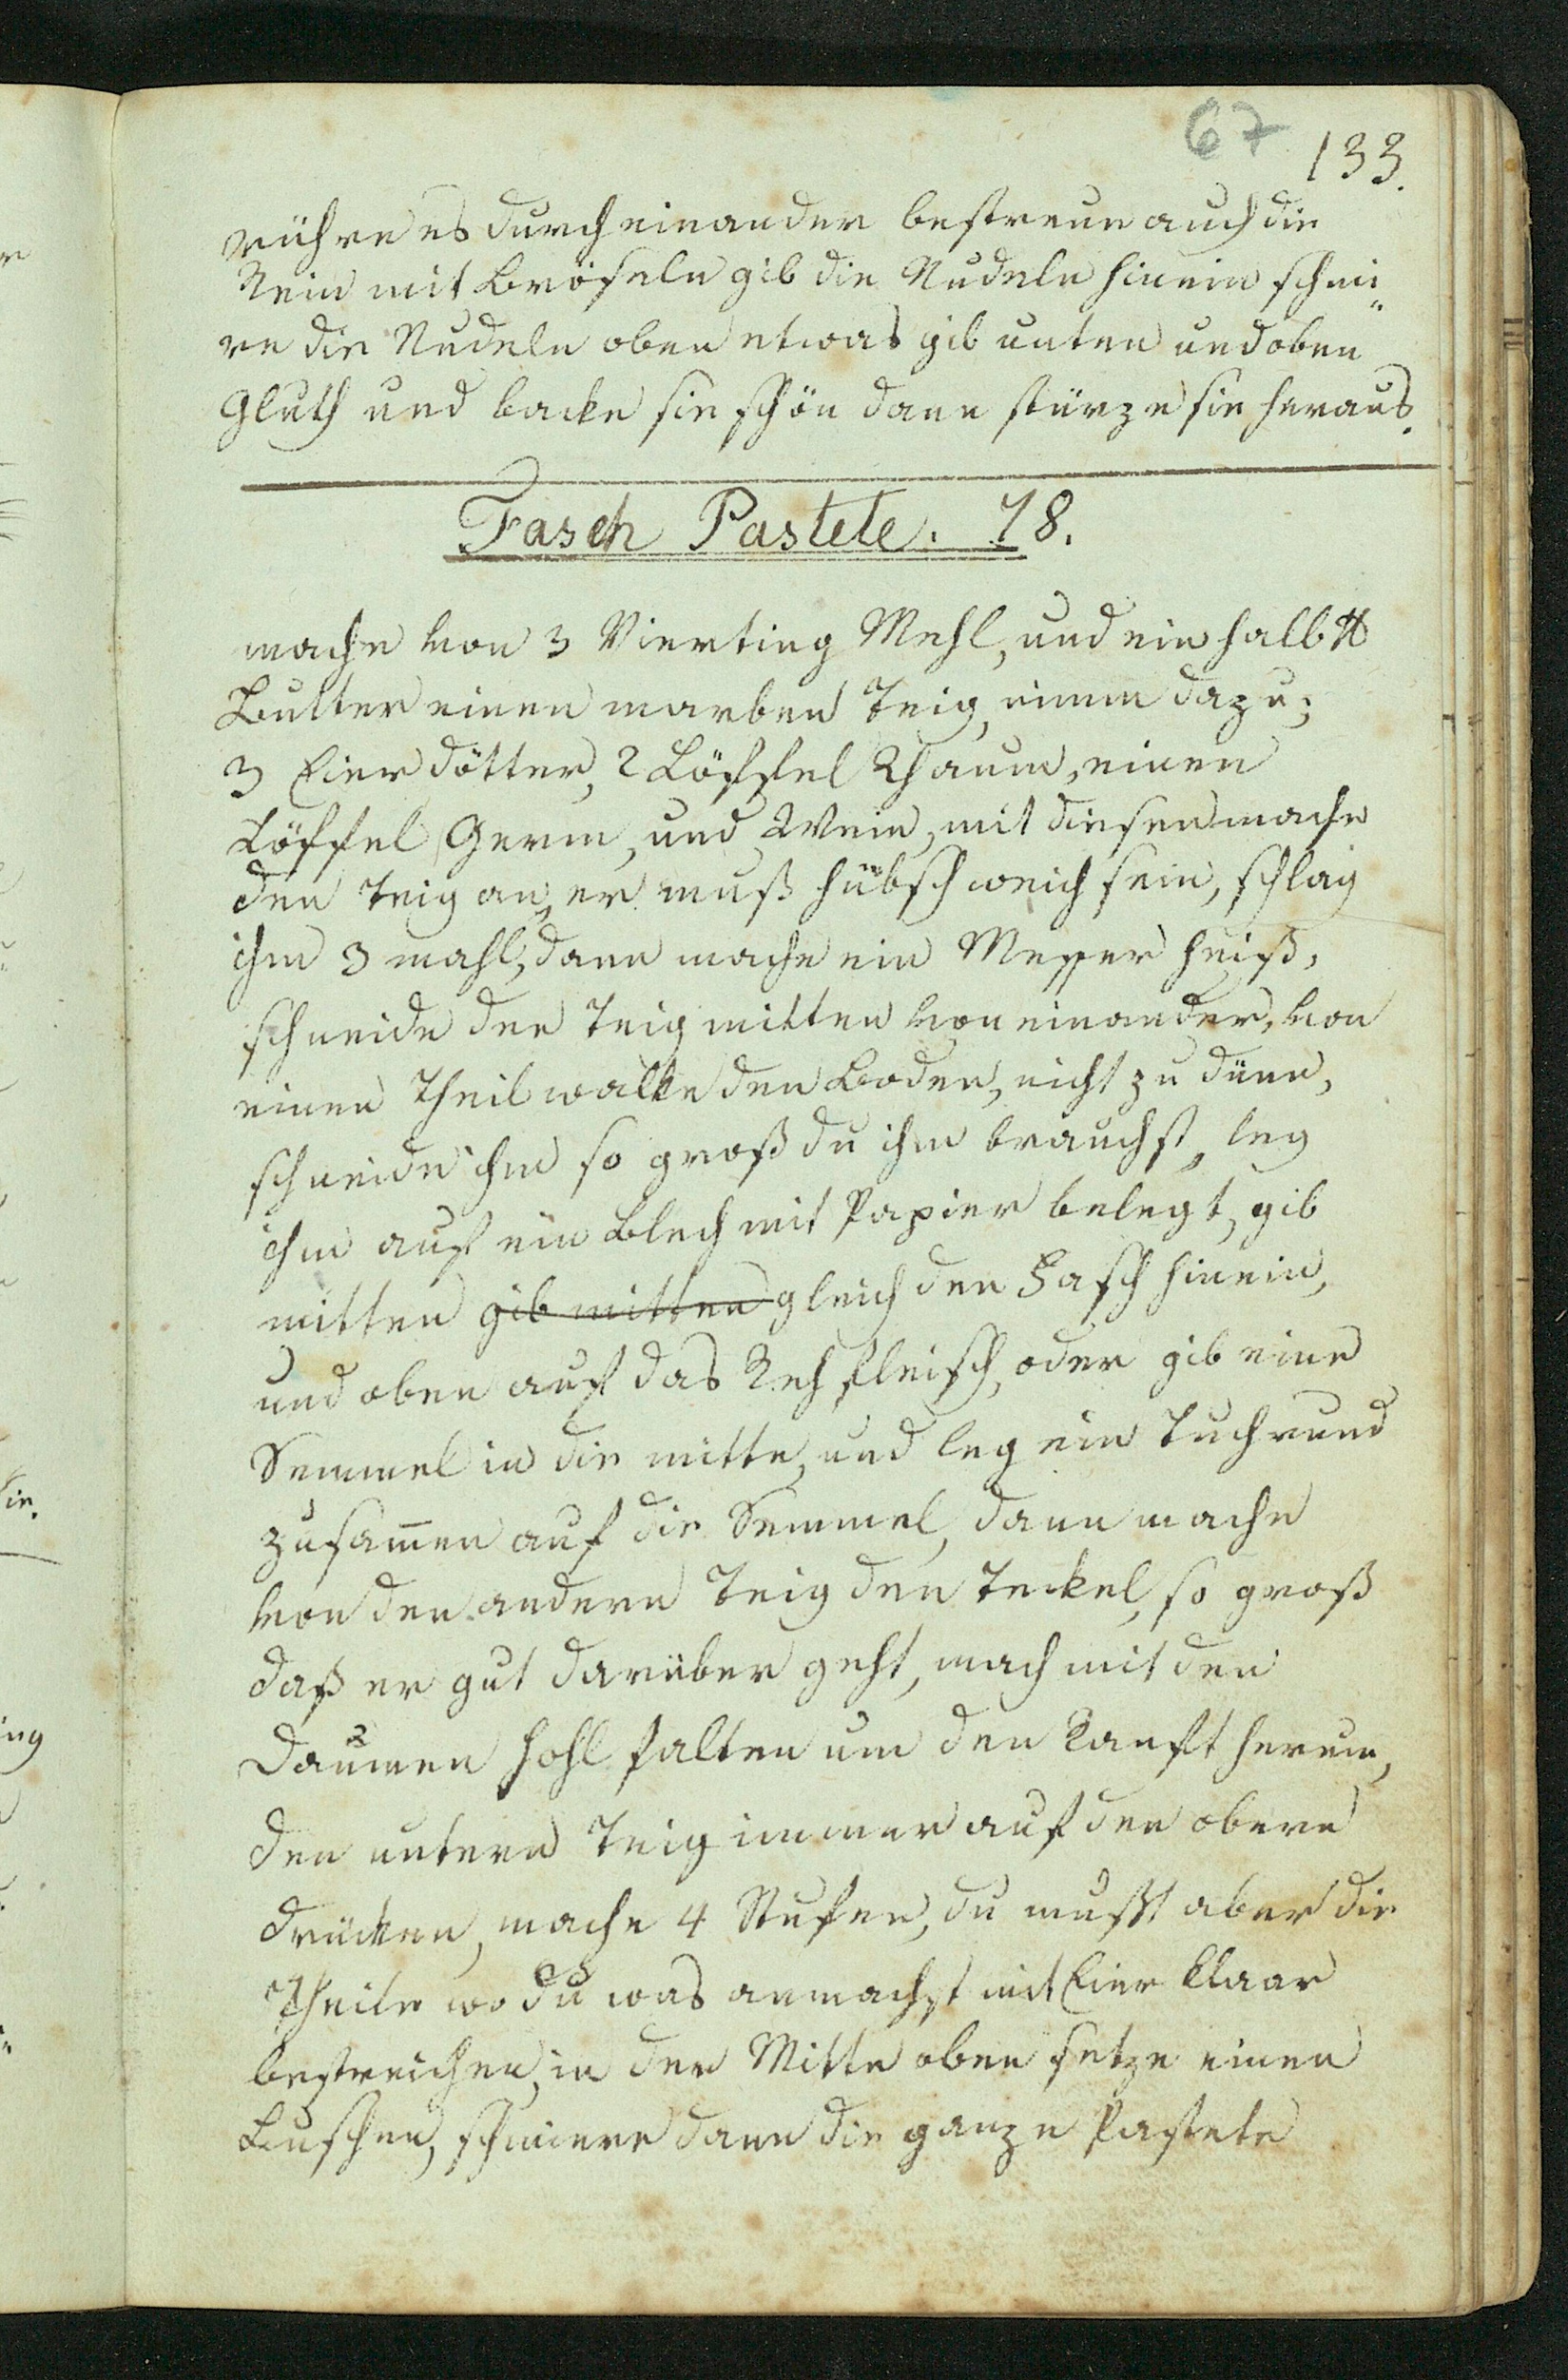 67
133.
rühre es durch einander bestreue auch die
Rein mit Bröseln gib die Nudeln hinein schmi„
re die Nudeln oben etwas gib unten und oben
Gluth und backe sie schön dann stürze sie heraus.
Fasch Pastete. 78.
mache von 3 Vierting Mehl, und ein halb ℔
Butter einen marben Teig, nimm dazu;
3 Eier dötter, 2 Löffel Rhaum, einen
Löffel Germ, und Wein, mit diesen mache
den Teig an, er muß hübsch weich sein, schlag
ihm 3 mahl, dann mache ein Messer heiß,
schneide den Teig mitten von einander, von
einen Theil walke den Boden, nicht zu dünn,
schneide ihm so groß du ihm brauchst, leg
ihm auf ein Blech mit Papier belegt, gib
mitten gib mitten gleich den Fasch hinein,
und oben auf das Rehfleisch, oder gib eine
Semmel in die mitte, und leg ein Tuch rund
zusam̅en auf die Semmel, dann mache
von den andern Teig den Teckel, so groß
daß er gut darüber geht, mach mit den
Daumen hohl falten um den Ranft herum,
den untern Teig immer auf den obern
drücken, mache 4 Stufen, du mußt aber die
Theile wo du was anmachst mit Eier klaar
bestreichen, in der Mitte oben setze einen
Buschen, schmiere dann die ganze Pastete